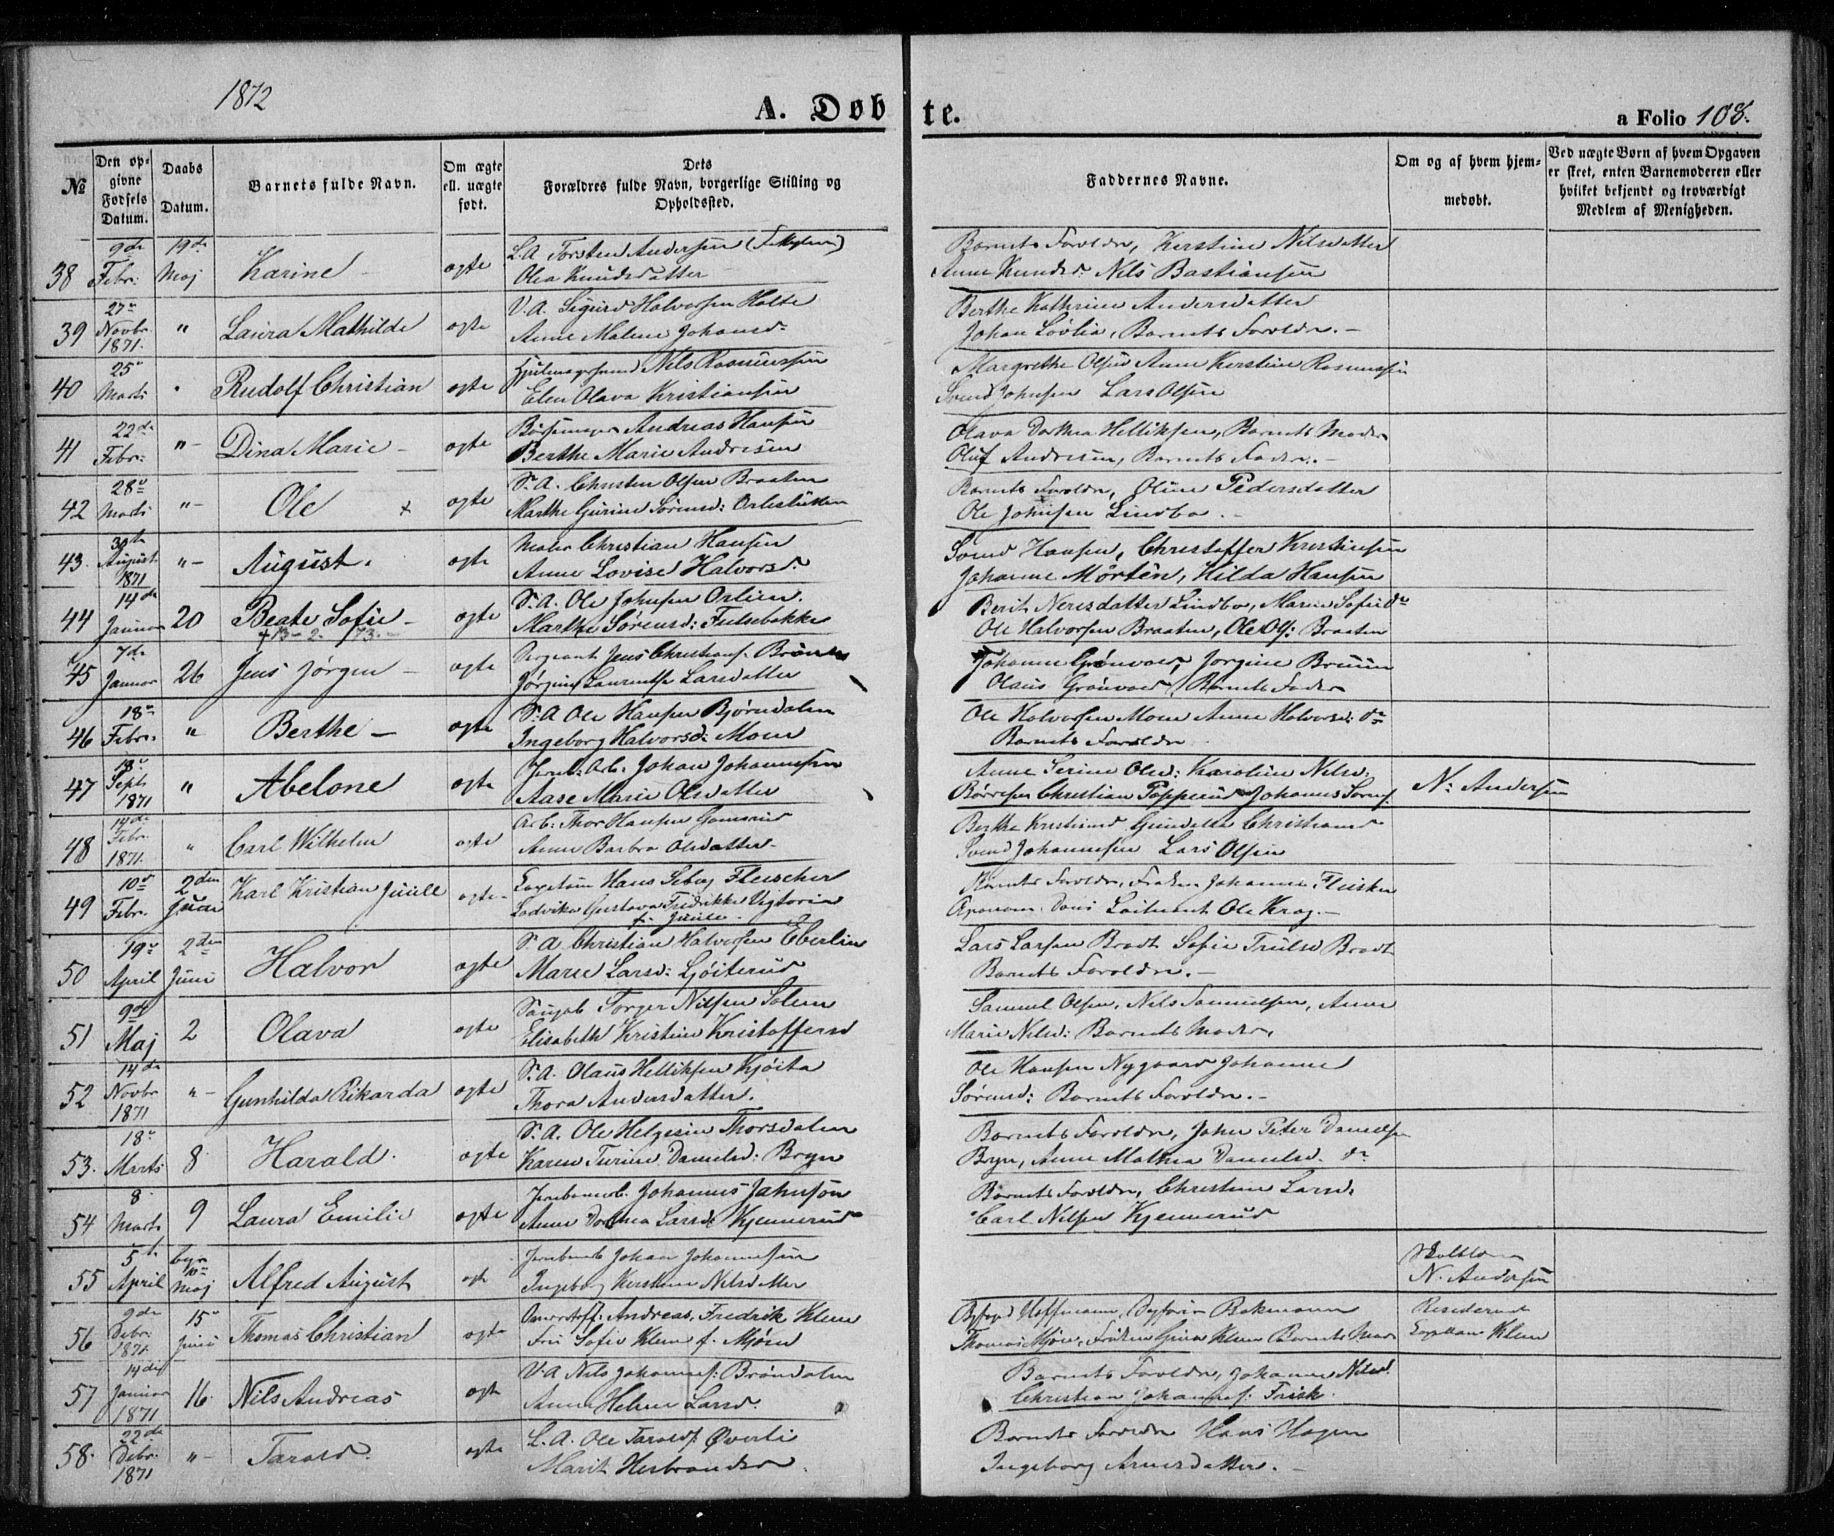 1872
A. Døbte.
a Folio 108.
№
Den opgivne Fødsels Datum.
Daabs Datum.
Barnets fulde Navn.
Om ægte ell. uægte født.
Dets Forældres fulde Navn, borgerlige Stilling og Opholdssted.
Faddernes Navne.
Om og af hvem hjemmedøbt.
Ved uægte Børn af hvem Opgaven er skeet, enten Barnemoderen eller hvilket bekjendt og troværdigt Medlem af Menigheden.
38 9de Febr: 19de Maj Karine ægte L.A. Torsten Andersen
Olea Knudsdatter
Barnets Forældre, Kerstine Nilsdatter
Anne Knudsd: Nils Bastiansen
39 27de Novbr 1871. " Laura Mathilde ægte V.A. Sigurd Halvorsen Holte
Anne Malene Johansd:
Berthe Kathrine Andersdatter
Johan Løvlia, Barnets Forældre. –
40 25de Marts " Rudolf Christian ægte Nils Rasmussen
Elen Olava Kristiansen
Margrethe Olsen Anne Kerstine Rasmussen
Svend Johnsen Lars Olsen
41 22de Febr: " Dina Marie – ægte Andreas Hansen
Berthe Marie Andresen
Olava Dorthea Helliksen, Barnets Moder
Oluf Andresen, Barnets Fader. –
42 28de Marts " Ole + ægte S.A. Christen Olsen Braaten
Marthe Gurine Sørensd:
Barnets Forældre, Oline Pedersdatter
Ole Johnsen Lindbo. –
43. 30te August 1871 " August. ægte Maler Christian Hansen
Anne Lovise Halvorsd
Svend Hansen, Christoffer Kristensen
Johanne Mørten, Hilda Hansen
44 14de Januar 20 Beate Sofie – ægte S.A. Ole Johnsen Orlien.
+ 13-2. 73.
Marthe Sørensd:
Berit Neresdatter Lindbo, Maren Sofie do
Ole Halvorsen Braaten, Ole Ols: Braaten
45 7de Januar 26 Jens Jørgen – ægte Sergeant Jens Christians.
Jørgine Laurentse Larsdatter
Johanne Grønvold, Jorgine Bruun
Olaus Grønvold, Barnets Fader
46 18de Febr. " Berthe – ægte S.A. Ole Hansen Bjørndalen
Ingeborg Halvorsd: Moen
Ole Halvorsen Moen Anne Halvorsd: do
Barnets Forældre
47 Septr 1871 " Abelone ægte Jernb: Arb. Johan Johannesen
Aase Marie Olsdatter
Anne Serine Olsd: Karoline Nilsd:
Christian Popperud Johannes
N. Andersen
48 14de Febr. 1871. " Carl Wilhelm ægte Arb: Thor Hansen
Anne Barbro Olsdatter
Berthe Gunilda Christians
Svend Johannesen Lars Olsen
49 10de Febr. 2den Juni Karl Kristian Juell ægte Hans Fleischer
Lodvika Gustava Fredrikke Vigtoria
f. Juell.
Barnets Forældre, Frøken Johanne Fleischer
Loitnant Ole Krag. –
50 19de April 2den Juni Halvor ægte S.A. Christian Halvorsen Eberlin
Maren Larsd:
Lars Larsen Bradt Sofie Trulsd Bradt
Barnets Forældre. –
51 9de Maj 2 Olava ægte Torger Nilsen Solem
Elisabeth Kristine Kristoffersd
Samuel Olsen, Nils Samuelsen, Anne
Marie Nilsd: Barnets Moder,
52 14de Novbr 1871 " Gunhilda Rikarda ægte S.A. Olaus Helliksen Kjøita
Thora Andersdatter.
Ole Hansen Nygaard Johanne
Sørensd: Barnets Forældre. –
53. 18de Marts 8 Harald. ægte S.A. Ole Helgesen Thorsdalen
Karen Turine Danielsd: Bryn
Barnets Forældre, Johan Peter Danielsen
Bryn, Anne Mathea Danielsd. do
54 8 Marts 9 Laura Emilie ægte Johannes Johnson
Anne Dorthea Larsd: Kjennerud
Barnets Forældre, Christine Larsd.
Carl Nilsen Kjennerud
55 5te April 10de Maj Alfred August ægte Johan Johannesen
Ingeborg Kerstine Nilsdatter
N. Andersen
56 9de Debr. 1871. 15de Juni Thomas Christian ægte Andreas Fredrik Klem
Fru Sofie Klem f. Mjøen
Byfogd Hoffmann, Bokmann
Thomas Mjøen, Frøken Klem Barnets Mor
Residerende Kapellan Klem
57 14de Januar 1871 16. Nils Andreas ægte V.A. Nils Johannes: Brøndalen
Anne Helene Larsd.
Barnets Forældre, Johanne Nilsd.
Christian Johannes: Frisk.
58. 22de Debr. 1871 " Tarald. ægte L.A. Ole Taralds. Øverli
Marit Herbrandsd.
Barnets Forældre Hans Hagen
Ingeborg Arnesdatter. –